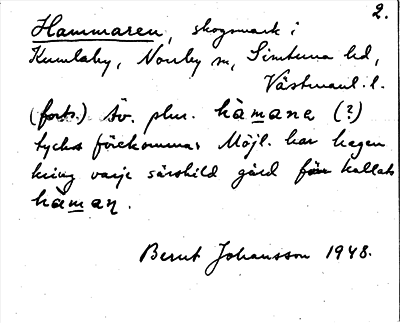 2.
Hammaren, skogsmark i
Kumlaby, Norrby sn, Simtuna hd,
Västmanl. l.
(forts.) Äv. plur. hàmana (?)
tycks förekomma. Möjl. har hagen
kring varje särskild gård kallats
hàman.
Bernt Johansson 1948.